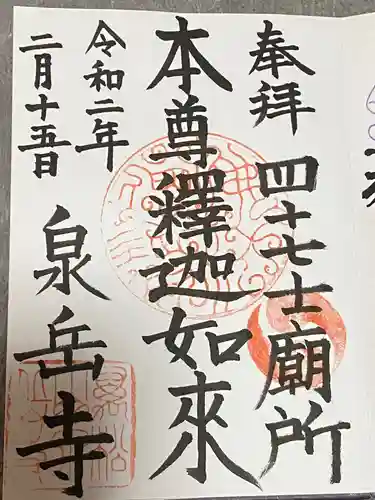 奉拝
四十七士廟所
本尊釋迦如來
令和二年
二月十五日
泉岳寺